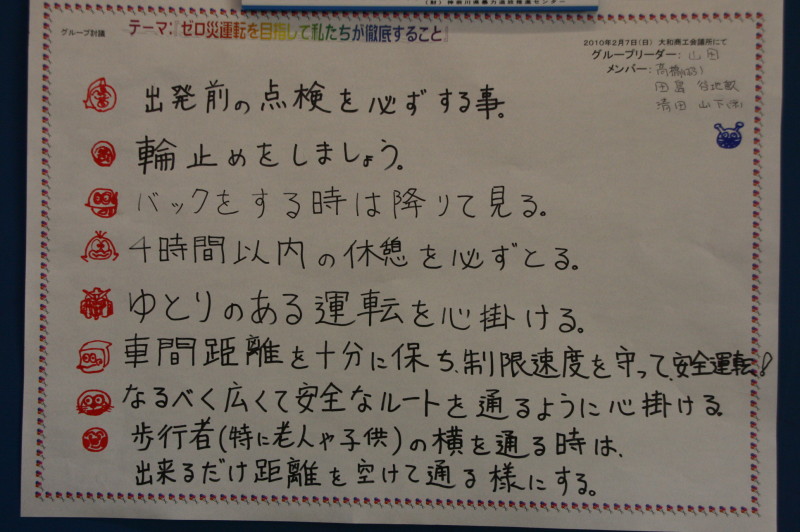 (財)神奈川県暴力追放推進センター
グループ討議
テーマ:『ゼロ災運転を目指して私たちが徹底すること』
2010年2月7日(日) 大和商工会議所にて
グループリーダー: 山田
メンバー: 高橋
田島
清田 山下
出発前の点検を必ずする事。
輪止めをしましょう。
バックをする時は降りて見る。
4時間以内の休憩を必ずとる。
ゆとりのある運転を心掛ける。
車間距離を十分に保ち、制限速度を守って、安全運転!
なるべく広くて安全なルートを通るように心掛ける
歩行者(特に老人や子供)の横を通る時は、
出来るだけ距離を空けて通る様にする。